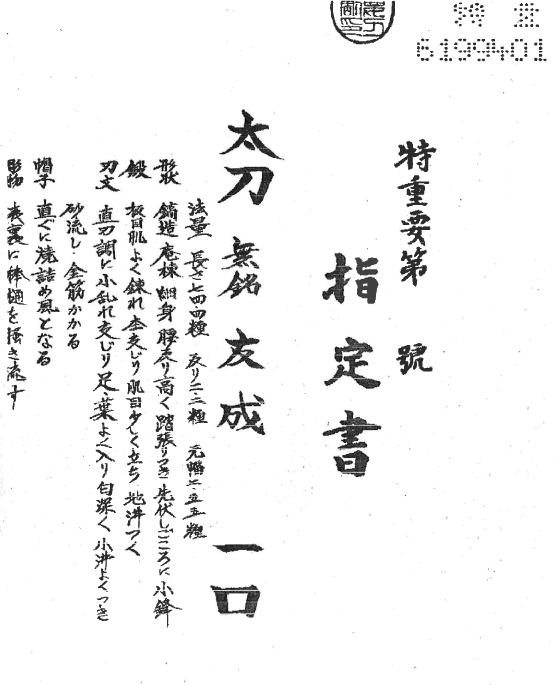 特重
6199401
特重要第 號
指定書
太刀 無銘 友成 一口
法量 長さ七四・四糎 反り二・二糎 元幅二・五五糎
形状 鎬造 庵棟 細身 腰反り高く 踏張りつき 先伏しごころに 小鋒
鍛 板目肌よく錬れ 杢交じり 肌目少しく立ち 地沸つく
刃文 直刃調に小乱れ交じり 足・葉よく入り 匂深く 小沸よくつき
砂流し・金筋かかる
帽子 直ぐに焼詰め風となる
彫物 表裏に棒樋を掻き流す